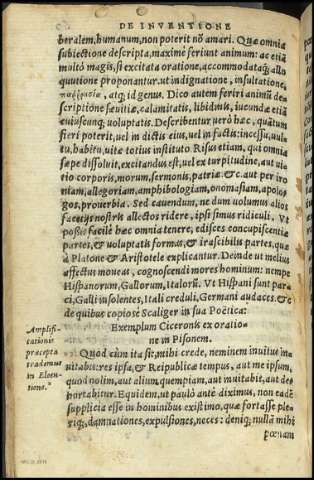 DE INVENTIONE
beralem, humanum, non poterit nõ amari. Quæ omnia
subiectione descripta, maximè feriunt animum: ac etiã
multò magis, si excitata oratione, accommodataq́; allo
quutione proponantur. ut indignatione, insultatione,
atq; id genus. Dico autem feriri animũ de-
scriptione sæuitiæ, calamitatis, libidinis, iucundæ etiã
cuiuscunq; voluptatis. Describentur verò hæc, quãtum
fieri poterit, uel in dictis eius, uel in factis: incessu, uul-
tu, habitu, uitæ totius instituto Risus etiam, qui omnia
sæpe dissoluit, excitandus est, uel ex turpitudine, aut ui-
tio corporis, morum, sermonis, patriæ & c. aut per iro
niam, allegoriam, amphibologiam, onomasiam, apolo-
gos, prouerbia. Sed cauendum, ne dum volumus alios
facetijs nostris allectos ridere, ipsi simus ridiculi. Vt
possis facilè hæc omnia tenere, edisces concupiscentiæ
partes, & voluptatis formas, & irascibilis partes, quæ
à Platone & Aristotele explicantur. Deinde ut melius
affectus moueas, cognoscendi mores hominum: nempe
Hispanorum, Gallorum, Italorũ. Vt Hispani sunt par
ci, Galli insolentes, Itali creduli, Germani audaces. & c
de quibus copiosè Scaliger in sua Poëtica:
Exemplum Ciceronis ex oratio-
ne in Pisonem.
Amplifi-
cationis
præcepta
trademus
in Elocu-
tione.
Quòd cùm ita sit, mihi crede, neminem inuitum in-
uitabit: res ipsa, & Reipublicæ tempus, aut me ipsum,
quod nolim, aut alium quempiam, aut inuitabit, aut de-
hortabitur. Equidem, ut paulò antè diximus, non eadẽ
supplicia esse in hominibus existimo, quæ fortasse ple-
riq;, damnationes, expulsiones, neces: deniq; nullã mihi
pœnam